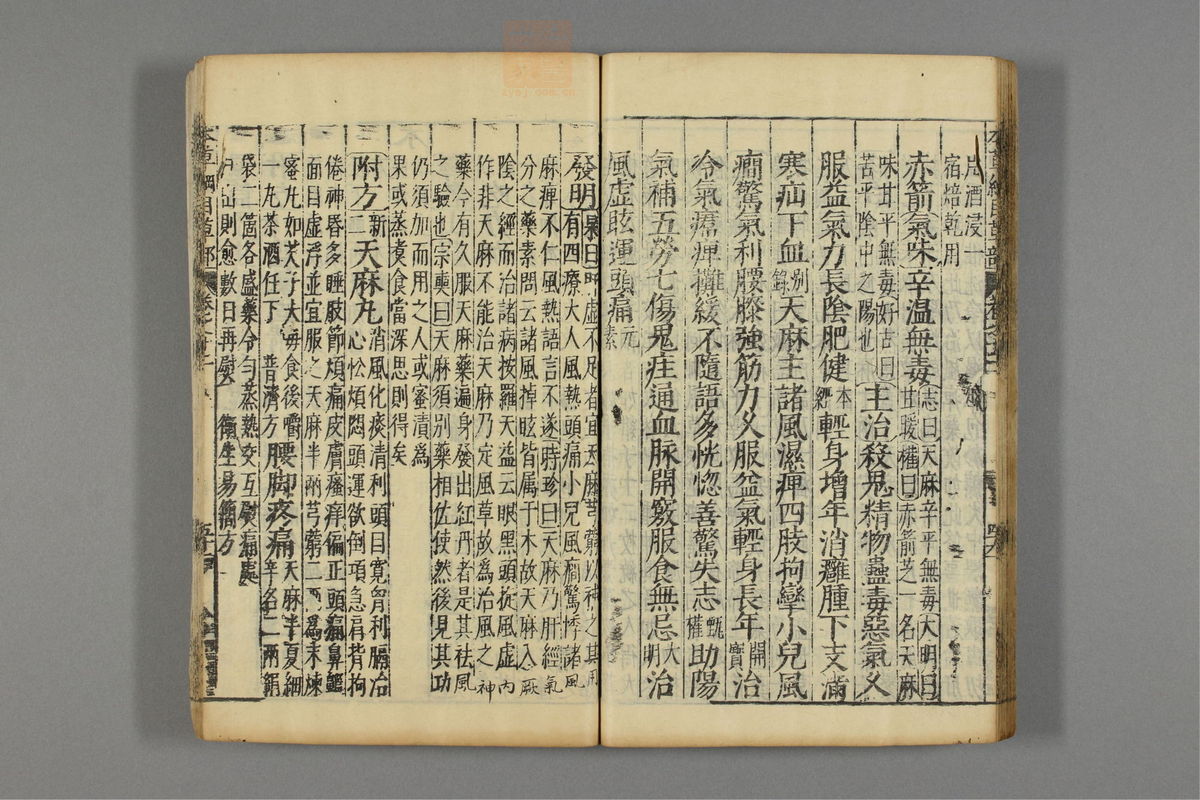 片酒浸一
宿焙乾用
赤箭氣味辛温無毒志曰天麻辛平無毒大明曰
甘暖權曰赤箭芝一名天麻
味甘平無毒好古曰
苦平陰中之陽也主治殺鬼精物蠱毒惡氣久
服益氣力長陰肥健本經輕身增年消癰腫下支滿
寒疝下血別錄天麻主諸風濕痺四肢拘攣小兒風
癎驚氣利腰膝強筋力久服益氣輕身長年開寶治
冷氣𤸷痺攤緩不隨語多恍惚善驚失志甄權助陽
氣補五勞七傷鬼疰通血脉開竅服食無忌大明治
風虛眩運頭痛元素
發明杲曰肝虛不足者宜天麻芎藭以補之其用
有四療大人風熱頭痛小兒風癎驚悸諸風
麻痺不仁風熱語言不遂時珍曰天麻乃肝經氣
分之藥素問云諸風掉眩皆属于木故天麻入厥
陰之經而治諸病按羅天益云眼黑頭旋風虛内
作非天麻不能治天麻乃定風草故為治風之神
藥今有久服天麻藥遍身發出紅丹者是其祛風
之驗也宗奭曰天麻須别藥相佐使然後見其功
仍須加而用之人或蜜漬為
果或蒸煮食當深思則得矣
附方新二天麻丸消風化痰清利頭目寬胷利膈治
心忪煩悶頭運欲倒項急肩背拘
倦神昏多睡肢節煩痛皮膚瘙痒偏正頭痛鼻齆
面目虛浮並宜服之天麻半兩芎藭二兩為末煉
蜜丸如芡子大每食後嚼
一丸茶酒任下 普濟方腰脚疼痛天麻半夏細
辛各二兩絹
袋二箇各盛藥令匀蒸熱交互熨痛處
汗出則愈數日再熨 衛生易簡方